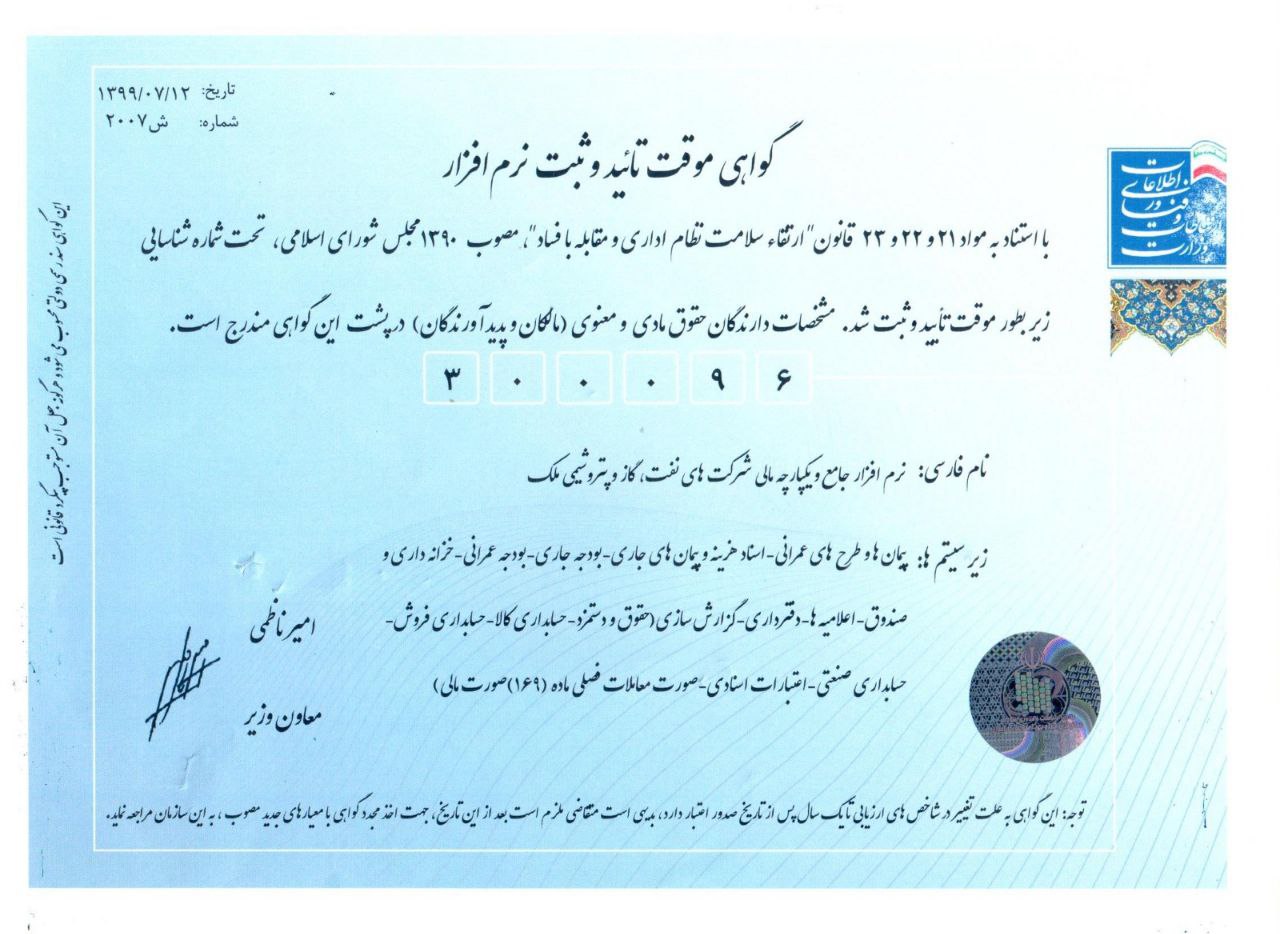 تاریخ: ۱۳۹۹/۰۷/۱۲
شماره: ش۲۰۰۷
گواهی موقت تائید و ثبت نرم افزار
وزارت ارتباطات و فناوری اطلاعات
با استناد به مواد ۲۱ و ۲۲ و ۲۳ قانون "ارتقاء سلامت نظام اداری و مقابله با فساد"، مصوب ۱۳۹۰ مجلس شورای اسلامی، تحت شماره شناسایی
زیر بطور موقت تأیید و ثبت شد. مشخصات دارندگان حقوق مادی و معنوی (مالکان و پدیدآورندگان) در پشت این گواهی مندرج است.
۳ ۰ ۰ ۰ ۹ ۶
نام فارسی: نرم افزار جامع و یکپارچه مالی شرکت های نفت، گاز و پتروشیمی ملک
زیر سیستم ها: پیمان ها و طرح های عمرانی-اسناد هزینه و پیمان های جاری-بودجه جاری-بودجه عمرانی-خزانه داری و
صندوق-اعلامیه ها-دفترداری-گزارش سازی (حقوق و دستمزد-حسابداری کالا-حسابداری فروش-
حسابداری صنعتی-اعتبارات اسنادی-صورت معاملات فصلی ماده (۱۶۹)صورت مالی)
امیر ناظمی
معاون وزیر
توجه: این گواهی به علت تغییر در شاخص های ارزیابی تا یک سال پس از تاریخ صدور اعتبار دارد، بدیهی است متقاضی ملزم است بعد از این تاریخ، جهت اخذ مجدد گواهی با معیارهای جدید مصوب، به این سازمان مراجعه نماید.
این گواهی سند رسمی دولتی محسوب می شود و هرگونه جعل آن مستوجب پیگرد قانونی است